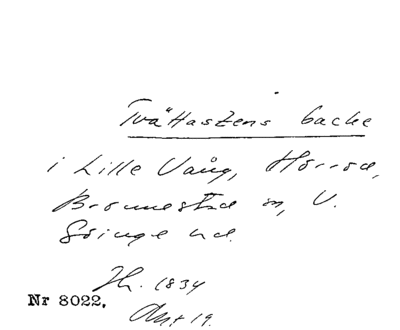 Två Hastens backe
i Lille Vång, Hörröd,
Brönnestad sn, V.
Göinge hd.
Th. 1834
Nr 8022.
Akt 19.